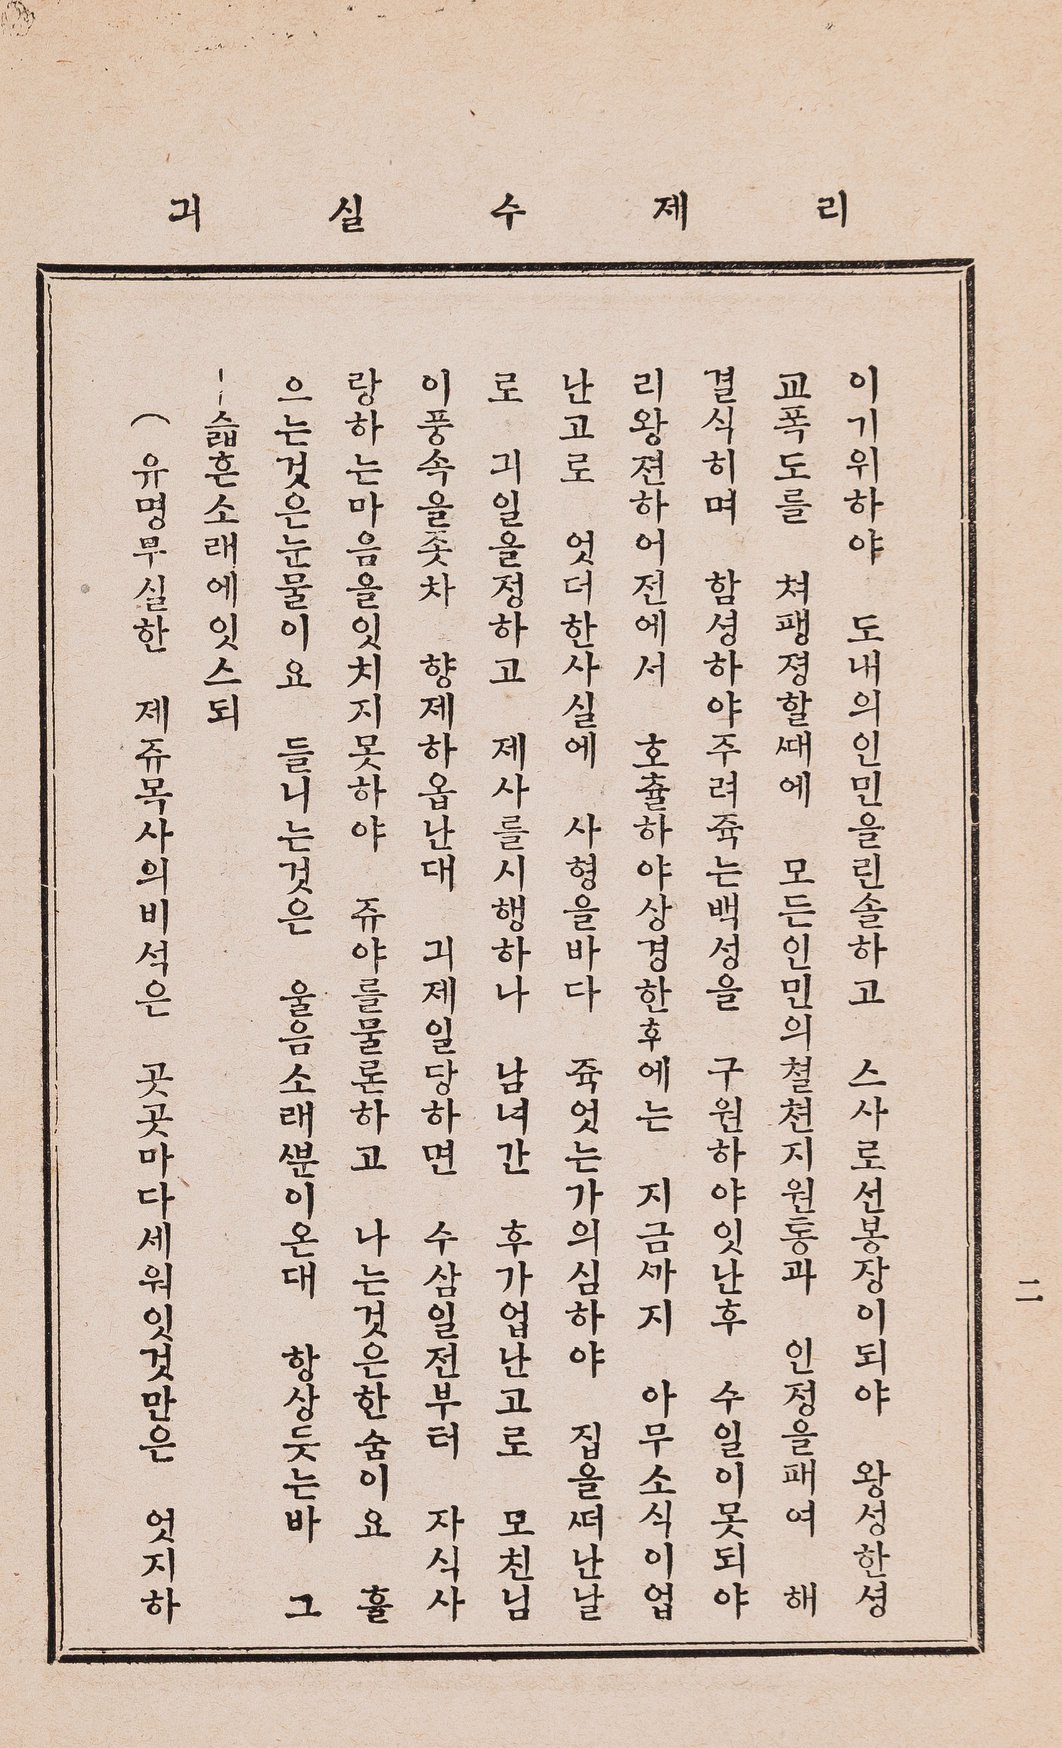 리제수실긔
이기위하야 도내의인민을린솔하고 스사로선봉장이되야 왕성한셩
교폭도를 쳐팽졍할ᄯᅢ에 모든인민의쳘쳔지원통과 인정을패여 해
결식히며 함셩하야주려쥭는백성을 구원하야잇난후 수일이못되야
리왕젼하어전에서 호츌하야상경한후에는 지금ᄭᅡ지 아무소식이업
난고로 엇더한사실에 사형을바다 쥭엇는가의심하야 집을ᄯᅥ난날
로 긔일을정하고 제사를시행하나 남녀간 후가업난고로 모친님
이풍속을좃차 향제하옵난대 긔제일당하면 수삼일전부터 자식사
랑하는마음을잇치지못하야 쥬야를물론하고 나는것은한숨이요 흘
으는것은눈물이요 들니는것은 울음소래ᄲᅮᆫ이온대 항상듯는바 그
ㅣ슯흔소래에잇스되
(유명무실한 제쥬목사의비석은 곳곳마다세워잇것만은 엇지하
二